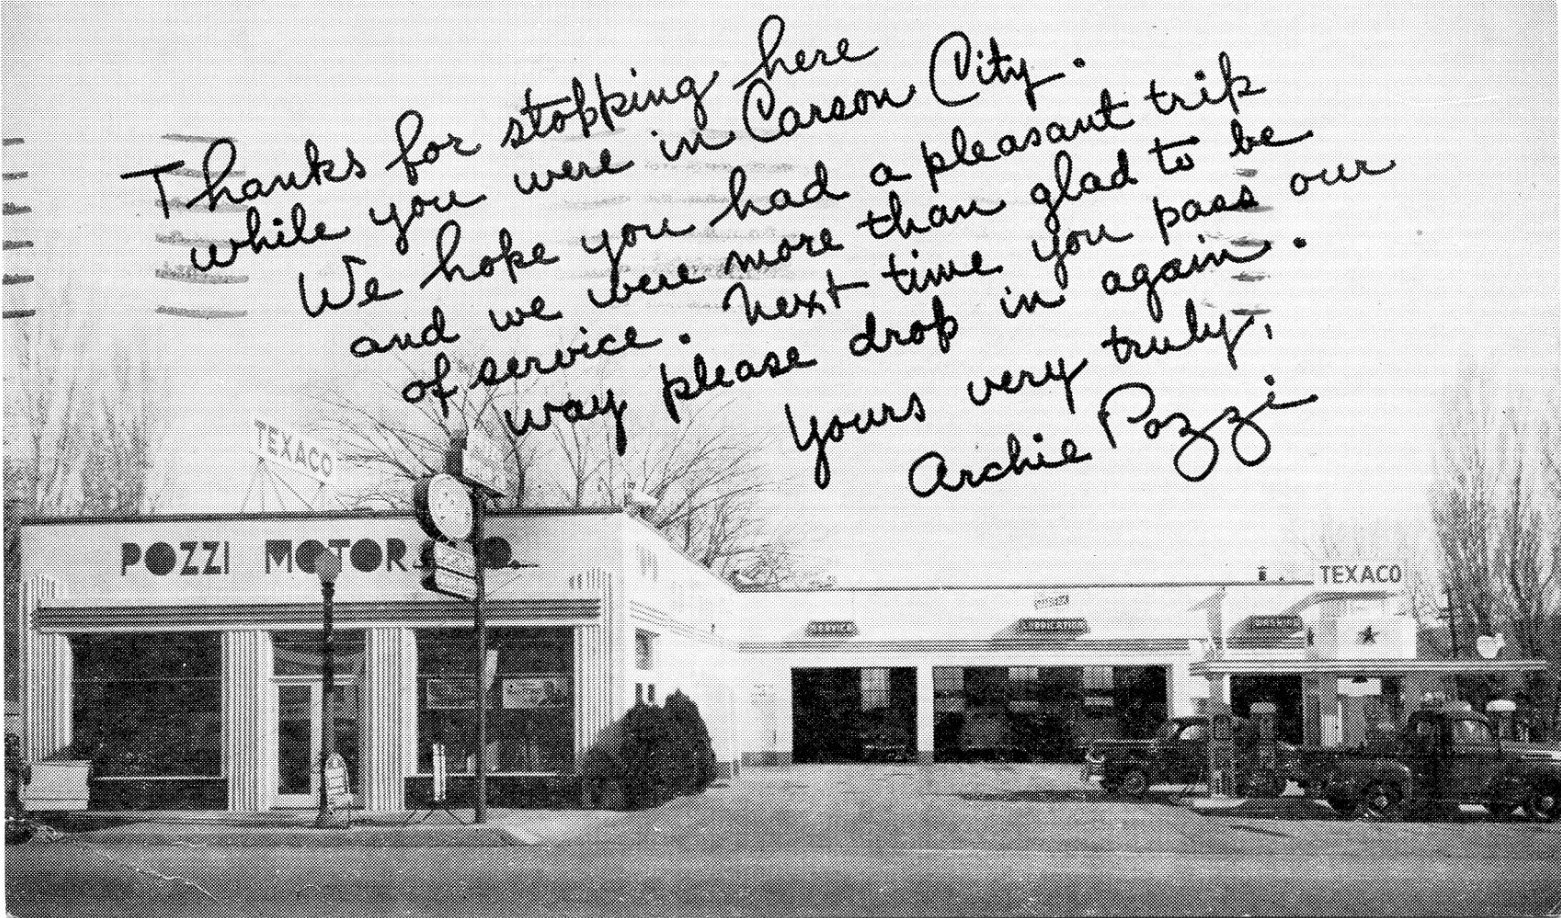 Thanks for stopping here
while you were in Carson City.
We hope you had a pleasant trip
and we were more than glad to be
of service. Next time you pass our
way please drop in again.
Yours very truly,
Archie Pozzi
TEXACO
POZZI MOTOR CO.
TEXACO
SERVICE
LUBRICATION